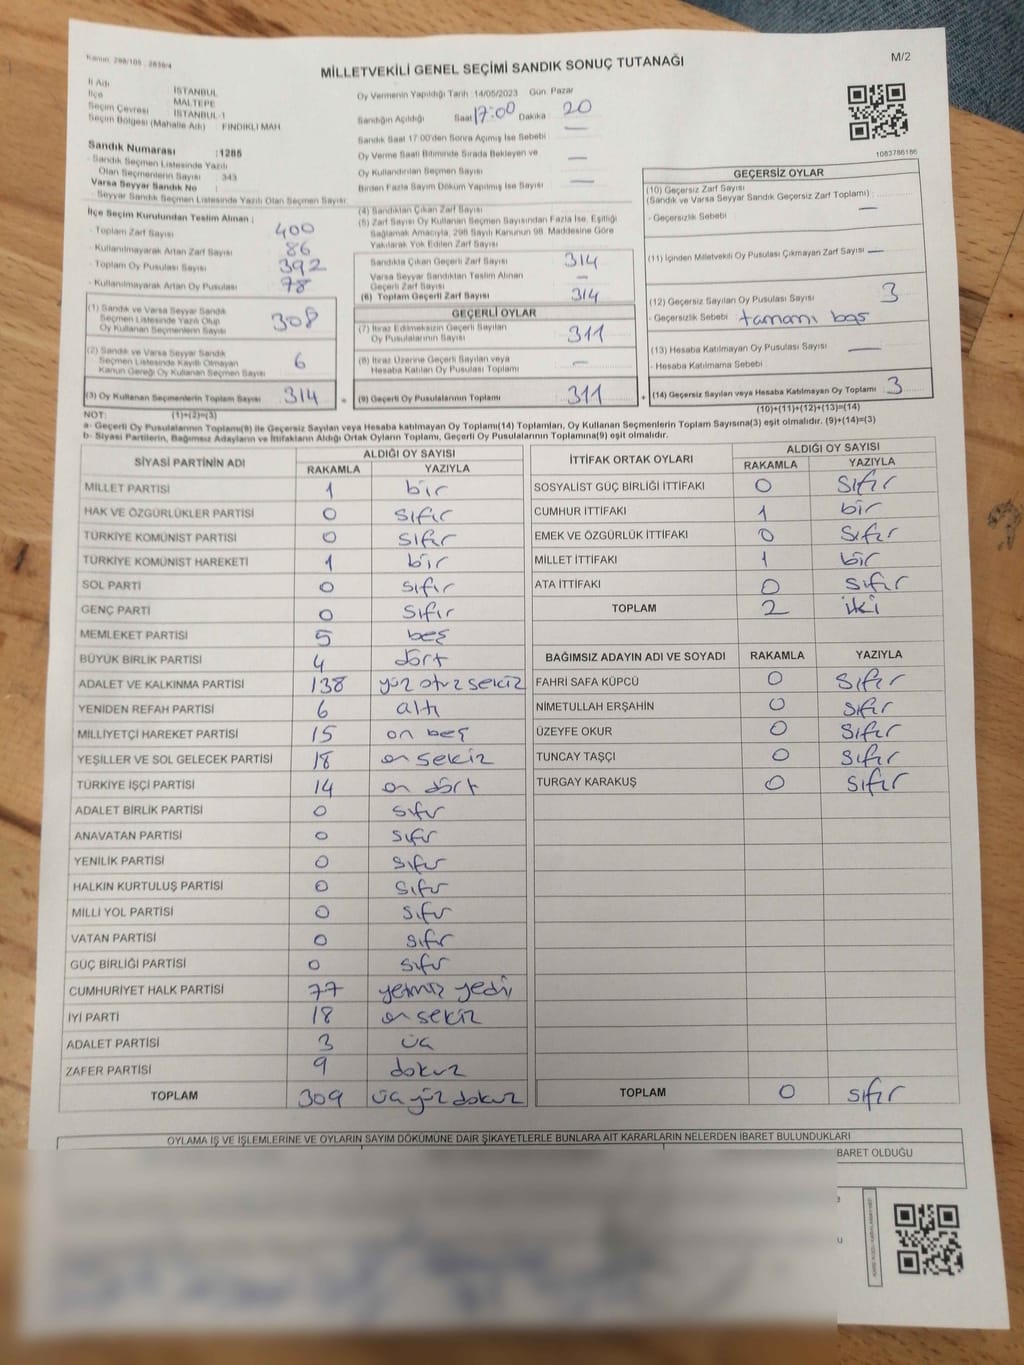 Kanun: 298/105 - 2839/4
MİLLETVEKİLİ GENEL SEÇİMİ SANDIK SONUÇ TUTANAĞI
M/2
İl Adı : İSTANBUL
İlçe : MALTEPE
Seçim Çevresi : İSTANBUL-1
Seçim Bölgesi (Mahalle Adı) : FINDIKLI MAH
Oy Vermenin Yapıldığı Tarih : 14/05/2023 Gün: Pazar
Sandığın Açıldığı Saat 17:00 Dakika 20
Sandık Saat 17:00'den Sonra Açılmış İse Sebebi —
Oy Verme Saati Bitiminde Sırada Bekleyen ve
Oy Kullandırılan Seçmen Sayısı —
Birden Fazla Sayım Döküm Yapılmış İse Sayısı —
1083786186
Sandık Numarası : 1285
- Sandık Seçmen Listesinde Yazılı
Olan Seçmenlerin Sayısı : 343
Varsa Seyyar Sandık No :
- Seyyar Sandık Seçmen Listesinde Yazılı Olan Seçmen Sayısı:
İlçe Seçim Kurulundan Teslim Alınan ;
- Toplam Zarf Sayısı 400
- Kullanılmayarak Artan Zarf Sayısı 86
- Toplam Oy Pusulası Sayısı 392
- Kullanılmayarak Artan Oy Pusulası 78
(1) Sandık ve Varsa Seyyar Sandık
Seçmen Listesinde Yazılı Olup
Oy Kullanan Seçmenlerin Sayısı 308
(2) Sandık ve Varsa Seyyar Sandık
Seçmen Listesinde Kayıtlı Olmayan
Kanun Gereği Oy Kullanan Seçmen Sayısı 6
(3) Oy Kullanan Seçmenlerin Toplam Sayısı 314
(4) Sandıktan Çıkan Zarf Sayısı
(5) Zarf Sayısı Oy Kullanan Seçmen Sayısından Fazla İse, Eşitliği
Sağlamak Amacıyla, 298 Sayılı Kanunun 98. Maddesine Göre
Yakılarak Yok Edilen Zarf Sayısı
Sandıkta Çıkan Geçerli Zarf Sayısı 314
Varsa Seyyar Sandıktan Teslim Alınan
Geçerli Zarf Sayısı —
(6) Toplam Geçerli Zarf Sayısı 314
GEÇERLİ OYLAR
(7) İtiraz Edilmeksizin Geçerli Sayılan
Oy Pusulalarının Sayısı 311
(8) İtiraz Üzerine Geçerli Sayılan veya
Hesaba Katılan Oy Pusulası Toplamı —
= (9) Geçerli Oy Pusulalarının Toplamı 311
GEÇERSİZ OYLAR
(10) Geçersiz Zarf Sayısı
(Sandık ve Varsa Seyyar Sandık Geçersiz Zarf Toplamı) :
- Geçersizlik Sebebi —
(11) İçinden Milletvekili Oy Pusulası Çıkmayan Zarf Sayısı —
(12) Geçersiz Sayılan Oy Pusulası Sayısı 3
- Geçersizlik Sebebi tamamı boş
(13) Hesaba Katılmayan Oy Pusulası Sayısı —
- Hesaba Katılmama Sebebi
+ (14) Geçersiz Sayılan veya Hesaba Katılmayan Oy Toplamı 3
NOT: (1)+(2)=(3)
(10)+(11)+(12)+(13)=(14)
a- Geçerli Oy Pusulalarının Toplamı(9) ile Geçersiz Sayılan veya Hesaba katılmayan Oy Toplamı(14) Toplamları, Oy Kullanan Seçmenlerin Toplam Sayısına(3) eşit olmalıdır. (9)+(14)=(3)
b- Siyasi Partilerin, Bağımsız Adayların ve İttifakların Aldığı Ortak Oyların Toplamı, Geçerli Oy Pusulalarının Toplamına(9) eşit olmalıdır.
SİYASİ PARTİNİN ADI ALDIĞI OY SAYISI
RAKAMLA YAZIYLA
MİLLET PARTİSİ 1 bir
HAK VE ÖZGÜRLÜKLER PARTİSİ 0 sıfır
TÜRKİYE KOMÜNİST PARTİSİ 0 sıfır
TÜRKİYE KOMÜNİST HAREKETİ 1 bir
SOL PARTİ 0 sıfır
GENÇ PARTİ 0 sıfır
MEMLEKET PARTİSİ 5 beş
BÜYÜK BİRLİK PARTİSİ 4 dört
ADALET VE KALKINMA PARTİSİ 138 yüz otuz sekiz
YENİDEN REFAH PARTİSİ 6 altı
MİLLİYETÇİ HAREKET PARTİSİ 15 on beş
YEŞİLLER VE SOL GELECEK PARTİSİ 18 on sekiz
TÜRKİYE İŞÇİ PARTİSİ 14 on dört
ADALET BİRLİK PARTİSİ 0 sıfır
ANAVATAN PARTİSİ 0 sıfır
YENİLİK PARTİSİ 0 sıfır
HALKIN KURTULUŞ PARTİSİ 0 sıfır
MİLLİ YOL PARTİSİ 0 sıfır
VATAN PARTİSİ 0 sıfır
GÜÇ BİRLİĞİ PARTİSİ 0 sıfır
CUMHURİYET HALK PARTİSİ 77 yetmiş yedi
İYİ PARTİ 18 on sekiz
ADALET PARTİSİ 3 üç
ZAFER PARTİSİ 9 dokuz
TOPLAM 309 üç yüz dokuz
İTTİFAK ORTAK OYLARI ALDIĞI OY SAYISI
RAKAMLA YAZIYLA
SOSYALİST GÜÇ BİRLİĞİ İTTİFAKI 0 sıfır
CUMHUR İTTİFAKI 1 bir
EMEK VE ÖZGÜRLÜK İTTİFAKI 0 sıfır
MİLLET İTTİFAKI 1 bir
ATA İTTİFAKI 0 sıfır
TOPLAM 2 iki
BAĞIMSIZ ADAYIN ADI VE SOYADI RAKAMLA YAZIYLA
FAHRİ SAFA KÜPCÜ 0 sıfır
NİMETULLAH ERŞAHİN 0 sıfır
ÜZEYFE OKUR 0 sıfır
TUNCAY TAŞÇI 0 sıfır
TURGAY KARAKUŞ 0 sıfır
TOPLAM 0 sıfır
OYLAMA İŞ VE İŞLEMLERİNE VE OYLARIN SAYIM DÖKÜMÜNE DAİR ŞİKAYETLERLE BUNLARA AİT KARARLARIN NELERDEN İBARET BULUNDUKLARI
BARET OLDUĞU